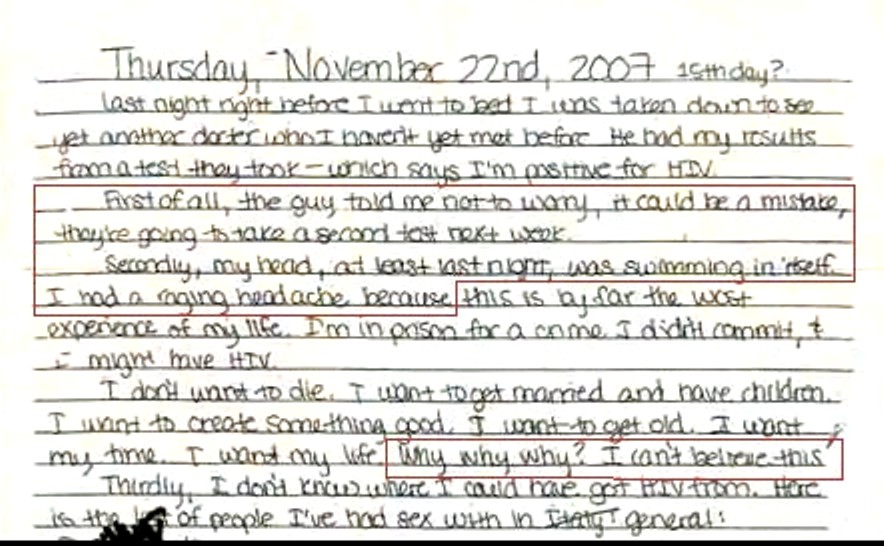 Thursday, November 22nd, 2007 15th day?
Last night right before I went to bed I was taken down to see
yet another doctor who I haven't yet met before. He had my results
from a test they took - which says I'm positive for HIV.
First of all, the guy told me not to worry, it could be a mistake,
they're going to take a second test next week.
Secondly, my head, at least last night, was swimming in itself.
I had a raging headache because this is by far the worst
experience of my life. I'm in prison for a crime I didn't commit, &
I might have HIV.
I don't want to die. I want to get married and have children.
I want to create something good. I want to get old. I want
my time. I want my life. Why why why? I can't believe this
Thirdly, I don't know where I could have got HIV from. Here
is the list of people I've had sex with in Italy general: